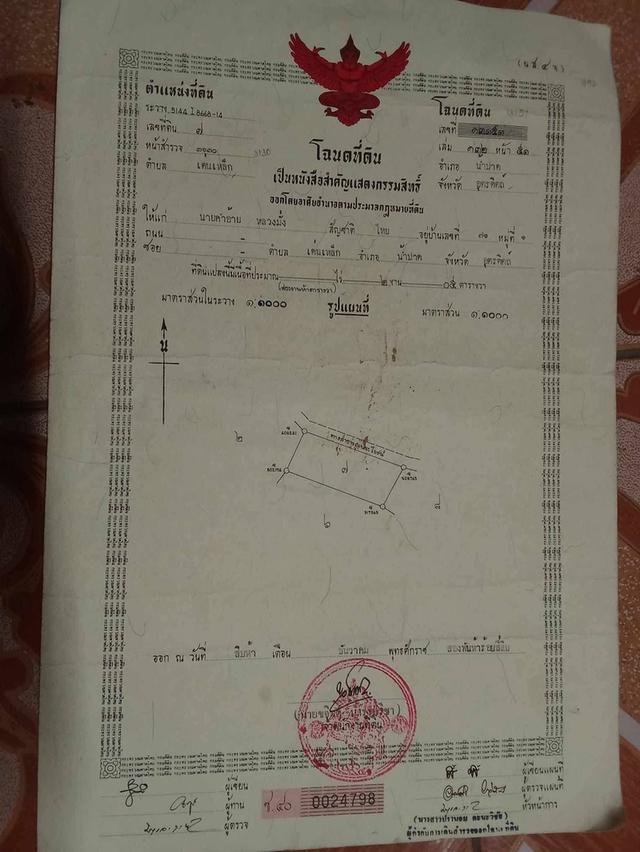 (น.ส. ๔ จ)
ตำแหน่งที่ดิน
ระวาง 5144 I 8668-14
เลขที่ดิน ๗
หน้าสำรวจ
ตำบล เด่นเหล็ก
โฉนดที่ดิน
เลขที่
เล่ม ๑๓๒ หน้า ๕๑
อำเภอ น้ำปาด
จังหวัด อุตรดิตถ์
โฉนดที่ดิน
เป็นหนังสือสำคัญแสดงกรรมสิทธิ์
ออกโดยอาศัยอำนาจตามประมวลกฎหมายที่ดิน
ให้แก่ นายคำอ้าย หลวงมั่ง สัญชาติ ไทย อยู่บ้านเลขที่ ๗๑ หมู่ที่ ๑
ถนน - ตำบล เด่นเหล็ก อำเภอ น้ำปาด จังหวัด อุตรดิตถ์
ซอย -
ที่ดินแปลงนี้มีเนื้อที่ประมาณ - ไร่ ๒ งาน ๐๕ ตารางวา
(สองงานห้าตารางวา)
มาตราส่วนในระวาง ๑:๑๐๐๐ รูปแผนที่ มาตราส่วน ๑:๑๐๐๐
น
๒
๗
๘
๖
ออก ณ วันที่ สิบห้า เดือน ธันวาคม พุทธศักราช สองพันห้าร้อยสี่สิบ
เจ้าพนักงานที่ดิน
ผู้เขียน
ผู้ทาน
ผู้ตรวจ
ช.๔๐ 0024798
ผู้เขียนแผนที่
ผู้ตรวจแผนที่
หัวหน้าการ
ผู้กำกับการเดินสำรวจออกโฉนดที่ดิน